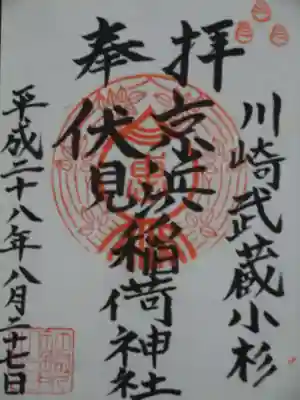 川崎武蔵小杉
奉拝
京浜伏見稲荷神社
平成二十八年八月二十七日